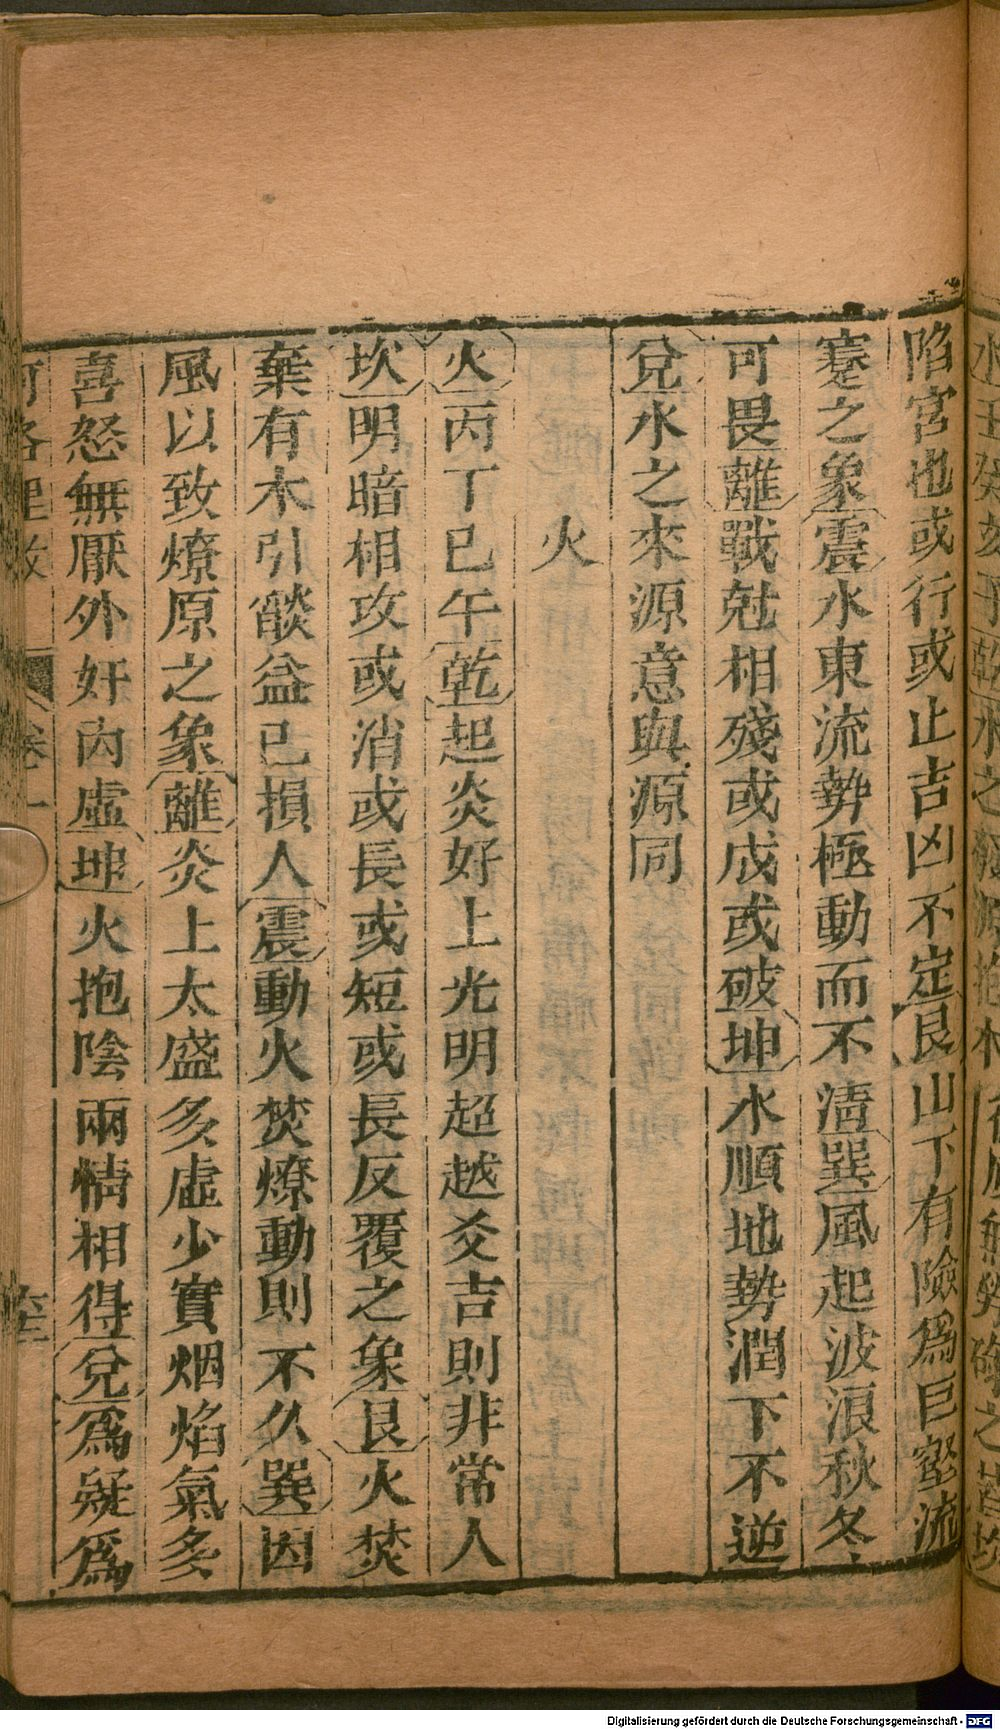 陷宮也或行或止吉凶不定艮山下有險爲巨壑流
蹇之象震水東流勢極動而不淸巽風起波浪秋冬
可畏離戰尅相殘或成或破坤水順地勢潤下不逆
兌水之來源意與源同
火
火丙丁巳午乾起炎好上光明超越爻吉則非常人
坎明暗相攻或消或長或短或長反覆之象艮火焚
棄有木引燄益己損人震動火焚燎動則不久巽因
風以致燎原之象離炎上太盛多虛少實烟焰氣多
喜怒無厭外奸內虛坤火抱陰兩情相得兌爲疑爲
卷一
Digitalisierung gefördert durch die Deutsche Forschungsgemeinschaft - DFG